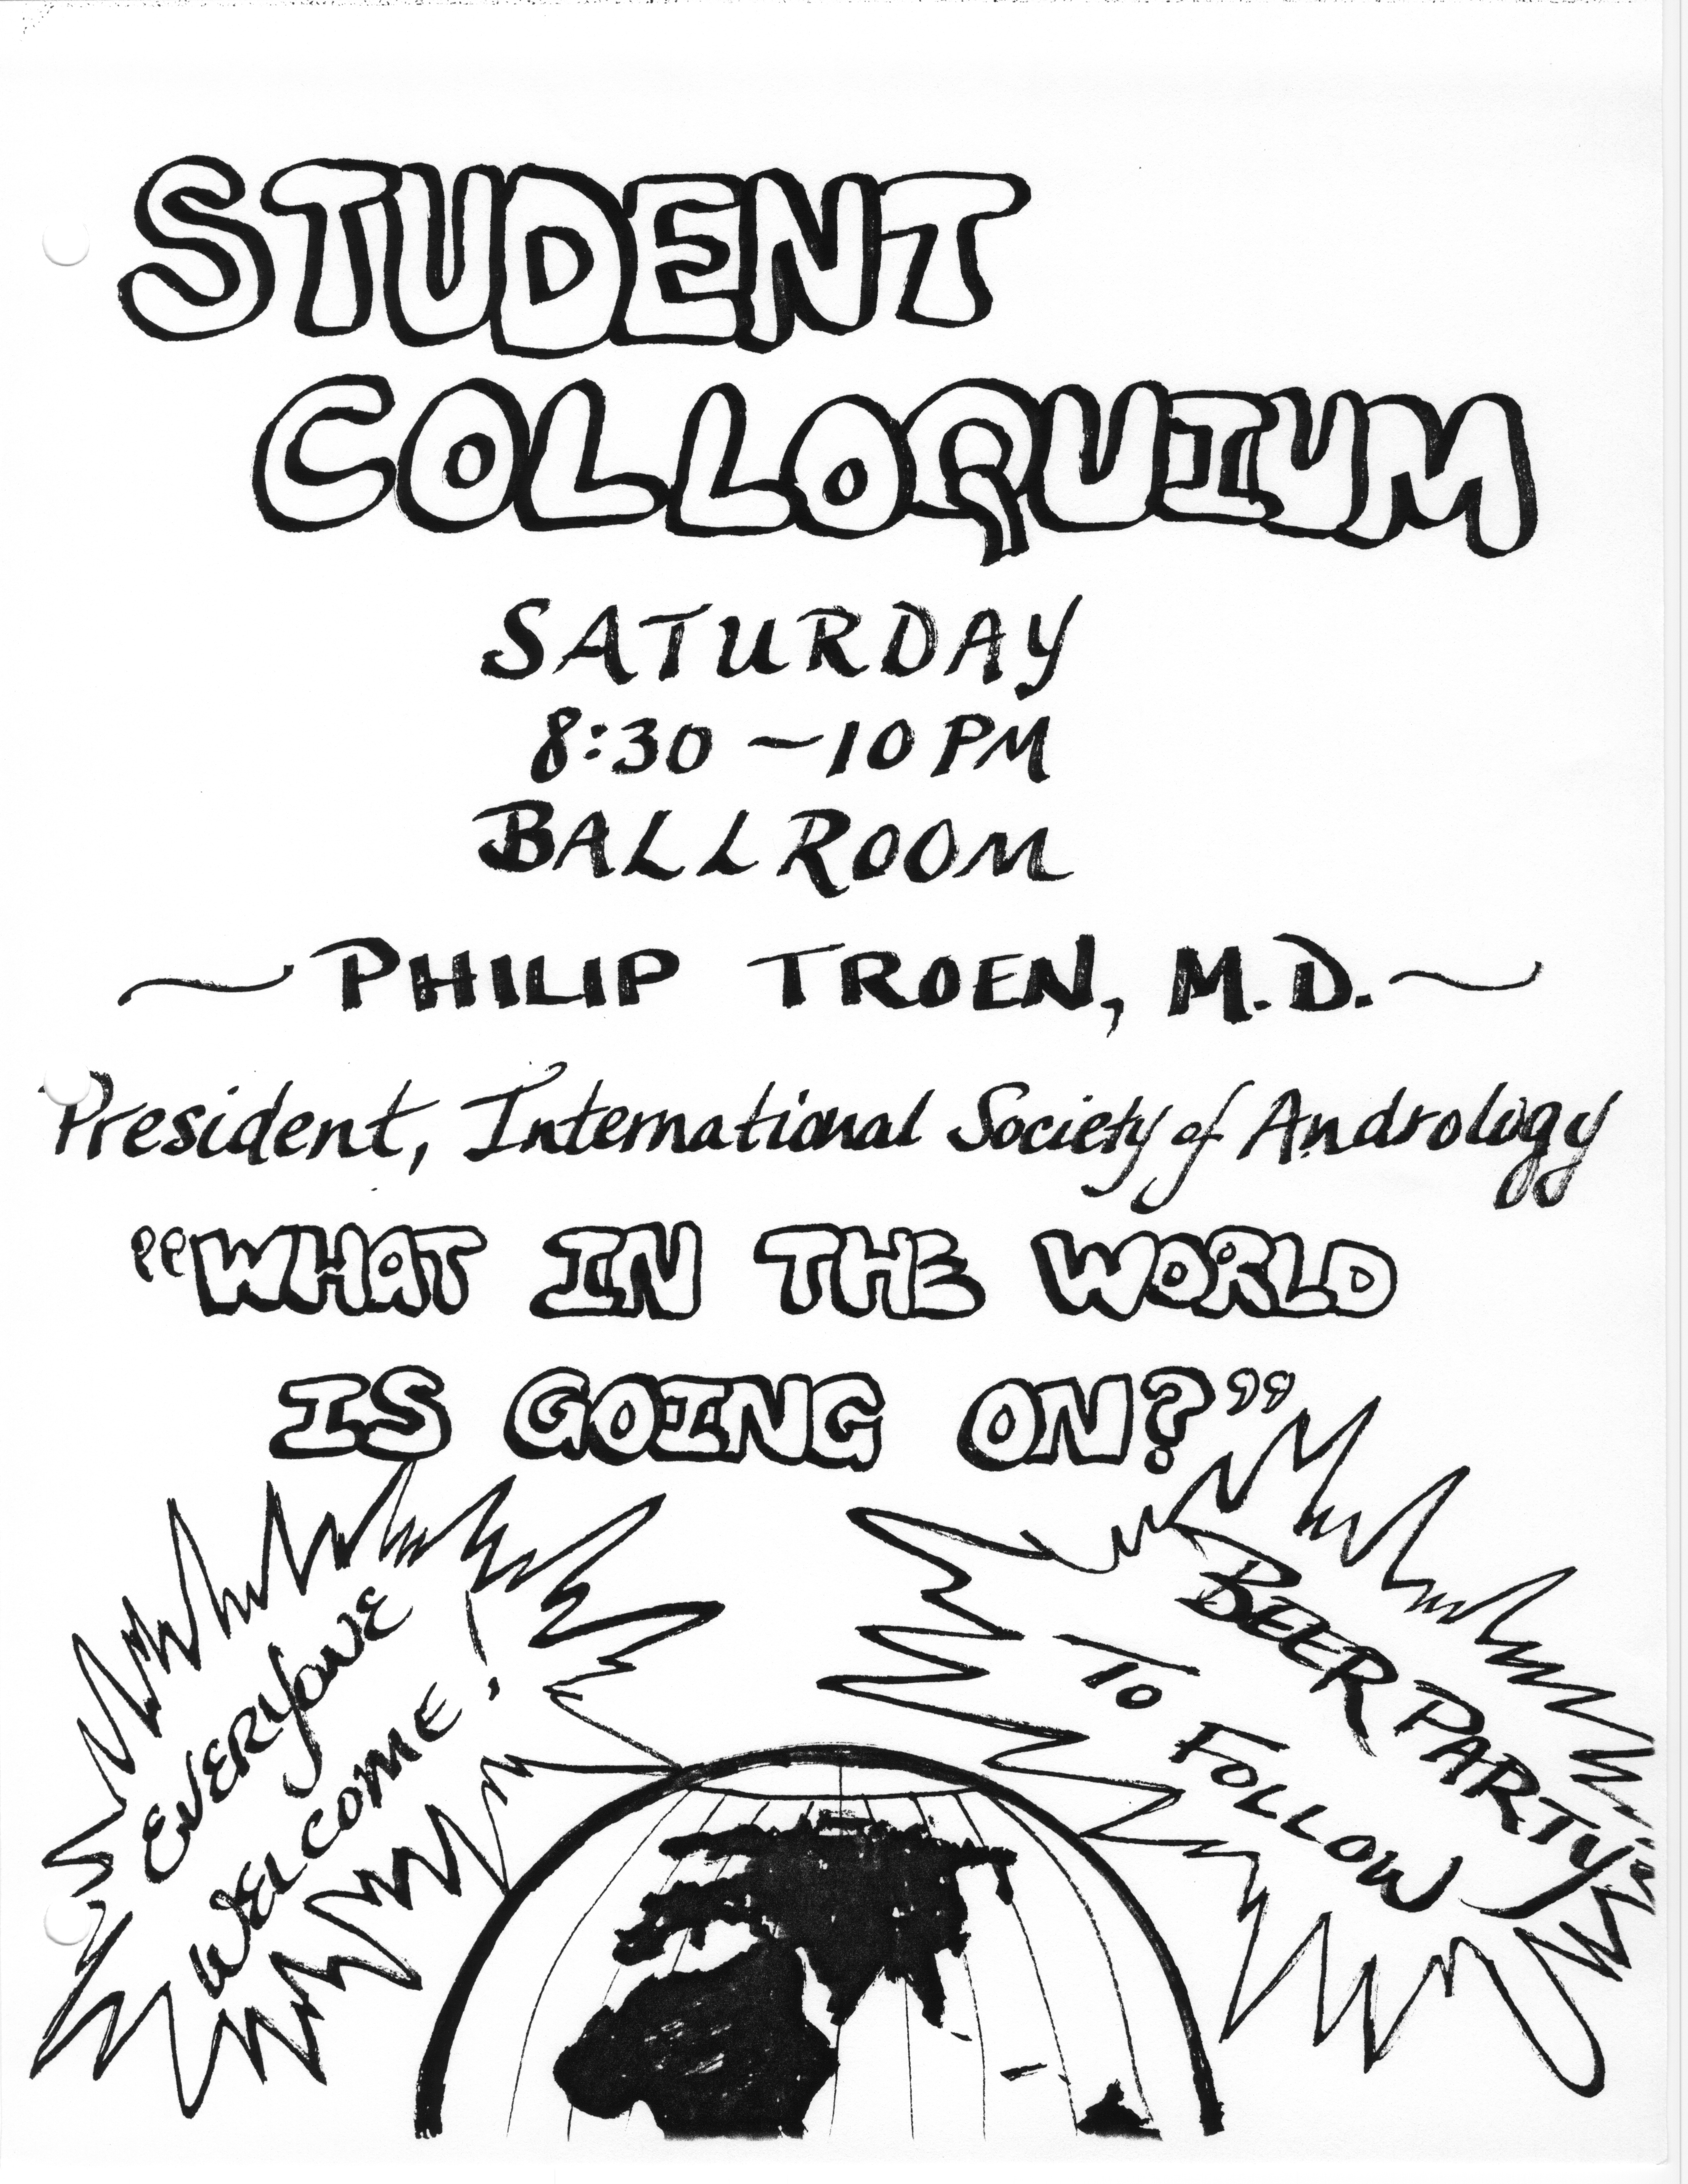 STUDENT
COLLOQUIUM
SATURDAY
8:30 – 10 PM
BALLROOM
~ PHILIP TROEN, M.D. ~
President, International Society of Andrology
"WHAT IN THE WORLD
IS GOING ON?"
EVERYONE
WELCOME!
BEER PARTY
TO FOLLOW